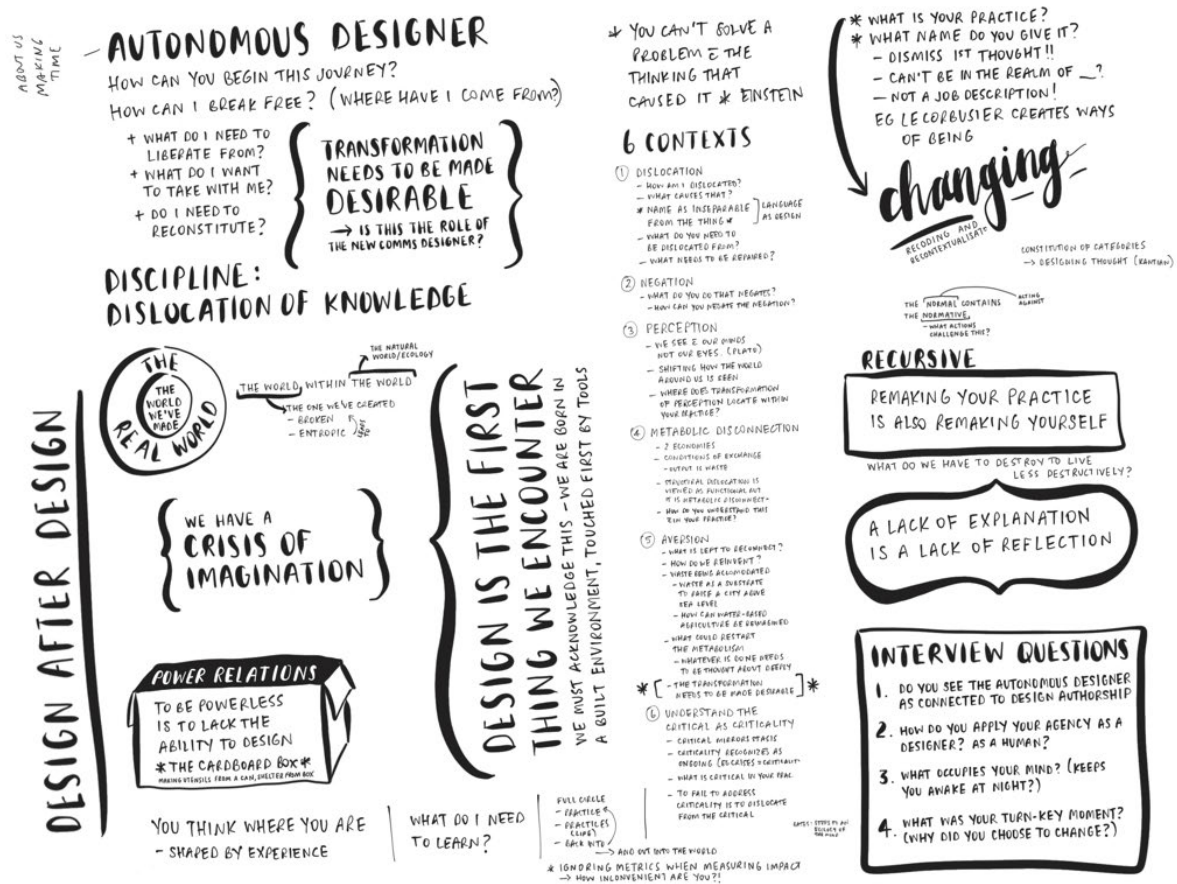 ABOUT US
MAKING
TIME
AUTONOMOUS DESIGNER
HOW CAN YOU BEGIN THIS JOURNEY?
HOW CAN I BREAK FREE? (WHERE HAVE I COME FROM?)
+ WHAT DO I NEED TO
LIBERATE FROM?
+ WHAT DO I WANT
TO TAKE WITH ME?
+ DO I NEED TO
RECONSTITUTE?
TRANSFORMATION
NEEDS TO BE MADE
DESIRABLE
→ IS THIS THE ROLE OF
THE NEW COMMS DESIGNER?
DISCIPLINE:
DISLOCATION OF KNOWLEDGE
DESIGN AFTER DESIGN
THE
REAL WORLD
THE
WORLD
WE'VE
MADE
THE NATURAL
WORLD/ECOLOGY
THE WORLD WITHIN THE WORLD
THE ONE WE'VE CREATED
- BROKEN
- ENTROPIC
LEADS
TO
WE HAVE A
CRISIS OF
IMAGINATION
POWER RELATIONS
TO BE POWERLESS
IS TO LACK THE
ABILITY TO DESIGN
* THE CARDBOARD BOX *
MAKING UTENSILS FROM A CAN, SHELTER FROM BOX
DESIGN IS THE FIRST
THING WE ENCOUNTER
WE MUST ACKNOWLEDGE THIS - WE ARE BORN IN
A BUILT ENVIRONMENT, TOUCHED FIRST BY TOOLS
YOU THINK WHERE YOU ARE
- SHAPED BY EXPERIENCE
WHAT DO I NEED
TO LEARN?
FULL CIRCLE
- PRACTICE
- PRACTICES
(LIFE)
- BACK INTO
→ AND OUT INTO THE WORLD
* IGNORING METRICS WHEN MEASURING IMPACT
→ HOW INCONVENIENT ARE YOU?!
* YOU CAN'T SOLVE A
PROBLEM c̄ THE
THINKING THAT
CAUSED IT * EINSTEIN
6 CONTEXTS
① DISLOCATION
- HOW AM I DISLOCATED?
- WHAT CAUSES THAT?
* NAME AS INSEPARABLE
FROM THE THING *
LANGUAGE
AS DESIGN
- WHAT DO YOU NEED TO
BE DISLOCATED FROM?
- WHAT NEEDS TO BE REPAIRED?
② NEGATION
- WHAT DO YOU DO THAT NEGATES?
- HOW CAN YOU NEGATE THE NEGATION?
③ PERCEPTION
- WE SEE c̄ OUR MINDS
NOT OUR EYES. (PLATO)
- SHIFTING HOW THE WORLD
AROUND US IS SEEN
- WHERE DOES TRANSFORMATION
OF PERCEPTION LOCATE WITHIN
YOUR PRACTICE?
④ METABOLIC DISCONNECTION
- 2 ECONOMIES
- CONDITIONS OF EXCHANGE
- OUTPUT IS WASTE
- STRUCTURAL DISLOCATION IS
VIEWED AS FUNCTIONAL BUT
IT IS METABOLIC DISCONNECT-
- HOW DO YOU UNDERSTAND THIS
IN YOUR PRACTICE?
⑤ AVERSION
- WHAT IS LEFT TO RECONNECT?
- HOW DO WE REINVENT?
- WASTE BEING ACCOMODATED
- WASTE AS A SUBSTRATE
TO RAISE A CITY ABOVE
SEA LEVEL
- HOW CAN WATER-BASED
AGRICULTURE BE REIMAGINED
- WHAT COULD RESTART
THE METABOLISM
- WHATEVER IS DONE NEEDS
TO BE THOUGHT ABOUT DEEPLY
* [ - THE TRANSFORMATION
NEEDS TO BE MADE DESIRABLE ] *
⑥ UNDERSTAND THE
CRITICAL AS CRITICALITY
- CRITICAL MIRRORS STASIS
- CRITICALITY RECOGNIZES AS
ONGOING
- WHAT IS CRITICAL IN YOUR PRAC.
- TO FAIL TO ADDRESS
CRITICALITY IS TO DISLOCATE
FROM THE CRITICAL
BATES: STEPS TO AN
ECOLOGY OF
THE MIND
* WHAT IS YOUR PRACTICE?
* WHAT NAME DO YOU GIVE IT?
- DISMISS 1ST THOUGHT!!
- CAN'T BE IN THE REALM OF __?
- NOT A JOB DESCRIPTION!
EG LE CORBUSIER CREATES WAYS
OF BEING
changing
RECODING AND
RECONTEXTUALISATO
CONSTITUTION OF CATEGORIES
→ DESIGNING THOUGHT (KANTIAN)
ACTING
AGAINST
THE NORMAL CONTAINS
THE NORMATIVE
- WHAT ACTIONS
CHALLENGE THIS?
RECURSIVE
REMAKING YOUR PRACTICE
IS ALSO REMAKING YOURSELF
WHAT DO WE HAVE TO DESTROY TO LIVE
LESS DESTRUCTIVELY?
A LACK OF EXPLANATION
IS A LACK OF REFLECTION
INTERVIEW QUESTIONS
1. DO YOU SEE THE AUTONOMOUS DESIGNER
AS CONNECTED TO DESIGN AUTHORSHIP
2. HOW DO YOU APPLY YOUR AGENCY AS A
DESIGNER? AS A HUMAN?
3. WHAT OCCUPIES YOUR MIND? (KEEPS
YOU AWAKE AT NIGHT?)
4. WHAT WAS YOUR TURN-KEY MOMENT?
(WHY DID YOU CHOOSE TO CHANGE?)